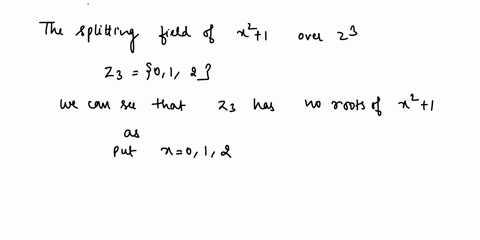 The splitting field of x²+1 over z3
Z3 = {0, 1, 2}
we can see that Z3 has no roots of x²+1
as
put x=0, 1, 2